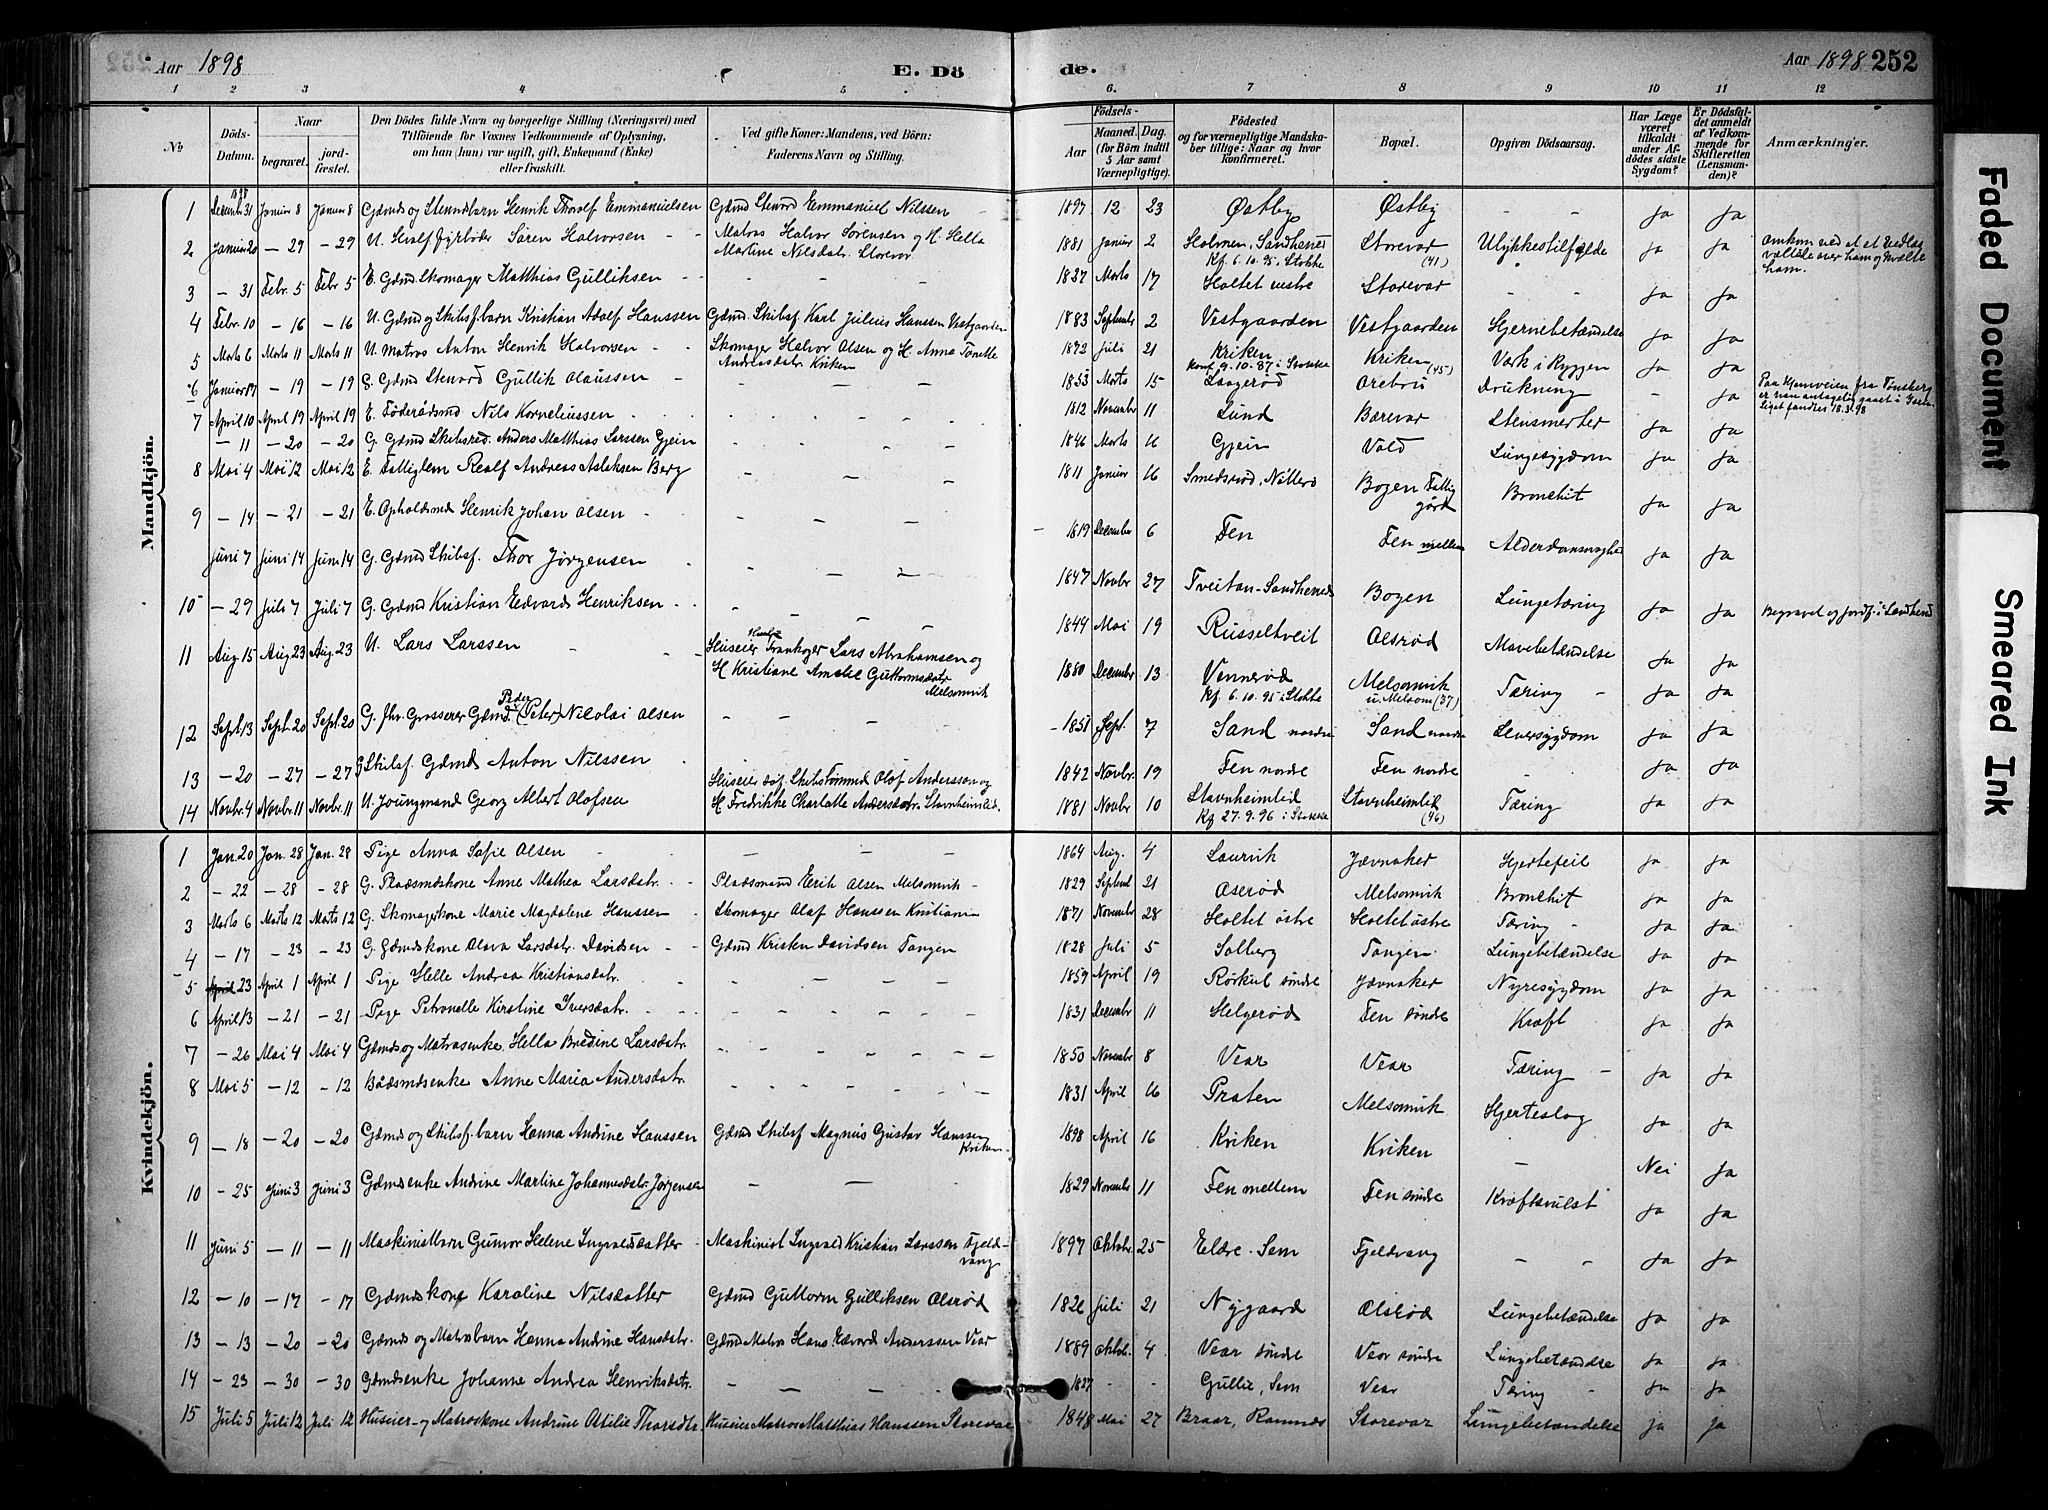 Aar 1898 E. Döde. Aar 1898 252
1 2 3 4 5 6. 7 8 9 10 11 12
No Döds-Datum. Naar begravet. jordfæstet. Den Dödes fulde Navn og borgerlige Stilling (Næringsvei) med Tilföiende for Voxnes Vedkommende af Oplysning, om han (hun) var ugift, gift, Enkemand (Enke) eller fraskilt. Ved gifte Koner: Mandens, ved Börn: Faderens Navn og Stilling. Födsels- Aar Maaned. Dag. (for Börn indtil 5 Aar samt Værnepligtige). Födested og for værnepligtige Mandskaber tillige: Naar og hvor konfirmeret. Bopæl. Opgiven Dödsaarsag. Har Læge været tilkaldt under Afdödes sidste Sygdom? Er Dödsfaldet anmeldt af Vedkommende for Skifteretten (Lensmanden)? Anmærkninger.
Mandkjön.
1 Decemb 31 Januar 8 Januar 8 Gdmds og Stenndbarn Henrik Thorolf Emmanuelsen Gdmd Stenord Emmanuel Nilssen 1897 12 23 Østby Østby - - ja ja
2 Januar 20 - 29 - 29 U. Hvalfyrböder Sören Halvorsen Matros Halvor Sörensen og H. Hella Martine Nilsdatr. Storevar 1881 Januar 2 Holmen, Sandhered Kf. 6.10.95 i Stokke Storevar (41) Ulykkestilfælde ja ja Omkom ved at et Vedlas væltede over ham og kvalte ham.
3 - 31 Febr. 5 Febr 5 E. Gdmd. Skomager Matthias Gulliksen - - - 1837 Marts 17 Holtet vestre Storevar - - ja ja
4 Febr. 10 - 16 - 16 U. Gdmd og Skibsf. barn Kristian Adolf Hanssen Gdmd. Skibsf. Karl Julius Hanssen Vestgaarden 1883 Septembr 2 Vestgaarden Vestgaarden Hjernebetændelse ja ja
5 Marts 6 Marts 11 Marts 11 U. Matros Anton Henrik Halvorsen Skomager Halvor Olsen og H. Anna Tonette Andreasdatr Kriken 1872 Juli 21 Kriken konf 9.10.87 i Stokke Kriken (45) Værk i Ryggen ja ja
6 Januar 17 - 19 - 19 G. Gdmd Stenord Gullik Olaussen - - 1853 Marts 15 Langerød Orebru Drukning - ja Paa Hjemveien fra Tønsberg er han antagelig gaaet i Isen. Liget fandtes 18.3.98
7 April 10 April 19 April 19 E. Föderådsmd Nils Korneliussen - - - 1812 Novembr 11 Lund Bærevar Stensmerter ja ja
- 11 - 20 - 20 G. Gdmd Skibsred. Anders Matthias Larssen Gjein - - - 1846 Marts 16 Gjein Vold Lungesygdom ja ja
8 Mai 4 Mai 12 Mai 12 E. Fattiglem Realf Andreas Asleksen Berg - - - 1811 Januar 16 Smedsrød, Nötterø Bogen Fattiggård Bronchit ja ja
9 - 14 - 21 - 21 E. Opholdsmd Henrik Johan Olsen - - - 1819 December 6 Fen Fen mellem Alderdomssvaghed ja ja
Juni 7 Juni 14 Juni 14 G. Gdmd Skibsf. Thor Jörgensen - - - 1847 Novbr 27 Tveitan - Sandhered Bogen Lungetæring ja ja Begravet og jordf. i Sandherd
10 - 29 Juli 7 Juli 7 G. Gdmd Kristian Edvard Henriksen - - - 1844 Mai 19 Russeltveit Olsrød Mavebetændelse ja ja
11 Aug 15 Aug 23 Aug 23 U. Lars Larssen Huseier Hvalf Trankoger Lars Abrahamsen og H Kristiane Amalie Guttormsdatr Melsomvik 1880 December 13 Vennerød Kf. 6.10.95 i Stokke Melsomvik u. Melsom (37) Tæring - ja ja
12 Sept 13 Sept. 20 Sept. 20 G. fhv. Grosserer Gdmd. Peder (Peter) Nicolai Olsen - - - 1851 Sept. 7 Sand nordre Sand nordre Leversygdom ja ja
13 - 20 - 27 - 27 G Skibsf. Gdmd Anton Nilssen 1842 Novbr. 19 Fen nordre Fen nordre - ja ja
14 Novbr. 4 Novbr. 11 Novbr. 11 U. Joungmand Georg Albert Olofsen Huseier og Skibstömmd Olof Anderssen og H. Fredrikke Charlotte Andersdatr. Stavnheimlid 1881 Novbr 10 Stavnheimlid Kf 27.9.96 i Stokke Stavnheimlid (46) Tæring ja ja
Kvindekjön.
1 Jan. 20 Jan. 28 Jan. 28 Pige Anna Sofie Olsen - - - 1864 Aug. 4 Laurvik Jævnaker Hjertefeil ja ja
2 - 22 - 28 - 28 G. Pladsmdskone Anne Mathea Larsdatr. Pladsmand Erik Olsen Melsomvik 1829 Septembr 21 Oserød Melsomvik Bronchit ja ja
3 Marts 6 Marts 12 Marts 12 G. Skomagerkone Marie Magdalene Hanssen Skomager Olaf Hanssen Kristiania 1871 Novembr 28 Holtet östre Holtet östre Tæring - ja ja
4 - 17 - 23 - 23 G. Gdmdskone Olava Larsdatr. Davidsen Gdmd Kristen Davidsen Tangen 1828 Juli 5 Solberg Tangen Lungebetændelse ja ja
5 April 23 April 1 April 1 Pige Helle Andrea Kristiansdatr. - - - 1859 April 19 Rörkul söndre Jævnaker Nyresygdom ja ja
6 April 13 - 21 - 21 Pige Petronelle Kirstine Iversdatr. - - - 1831 Decembr 11 Helgerød Fen söndre Kræft ja ja
7 - 26 Mai 4 Mai 4 Gdmds og Matrosenke Hella Bredine Larsdatr. - - - 1850 Novembr 8 Vear Vear Tæring - ja ja
8 Mai 5 - 12 - 12 Bådsmdsenke Anne Maria Andersdatr. - - - 1831 April 16 Præsten Melsomvik Hjerteslag ja ja
9 - 18 - 20 - 20 Gdmds og Skibsf. barn Hanna Andrine Hanssen Gdmd Skibsf Magnus Gustav Hanssen Kriken 1898 April 16 Kriken Kriken - Nei ja
10 - 25 Juni 3 Juni 3 Gdmdsenke Andrine Martine Johannesdatr. Jörgensen - - 1829 Novembr 11 Fen mellem Fen söndre Kræftsvulst ja ja
11 Juni 5 - 11 - 11 Maskinistbarn Gunvor Helene Ingvaldsdatter Maskinist Ingvald Kristian Larssen Fjeldvang 1897 Oktobr. 25 Eldre - Sem Fjeldvang - - ja ja
12 - 10 - 17 - 17 Gdmdskone Karoline Nilsdatter Gdmd Guttorm Gulliksen Olsrød 1826 Juli 21 Nygaard Olsrød Lungebetændelse ja ja
13 - 13 - 20 - 20 Gdmds og Matrosbarn Hanna Andrine Hansdatr. Gdmd Matros Hans Edvard Anderssen Vear 1889 Oktob. 4 Vear söndre Vear söndre Lungebetændelse ja ja
14 - 23 - 30 - 30 Gdmdsenke Johanne Andrea Henriksdatr. - - - 1827 - - Gullie, Sem Vear Tæring - ja ja
15 Juli 5 Juli 12 Juli 12 Huseier- og Matroskone Andrine Otilie Thorsdtr. Huseier Matros Matthias Hanssen Storevar 1848 Mai 27 Braar, Ramnæs Storevar Lungebetændelse ja ja
Faded Document
Smeared Ink